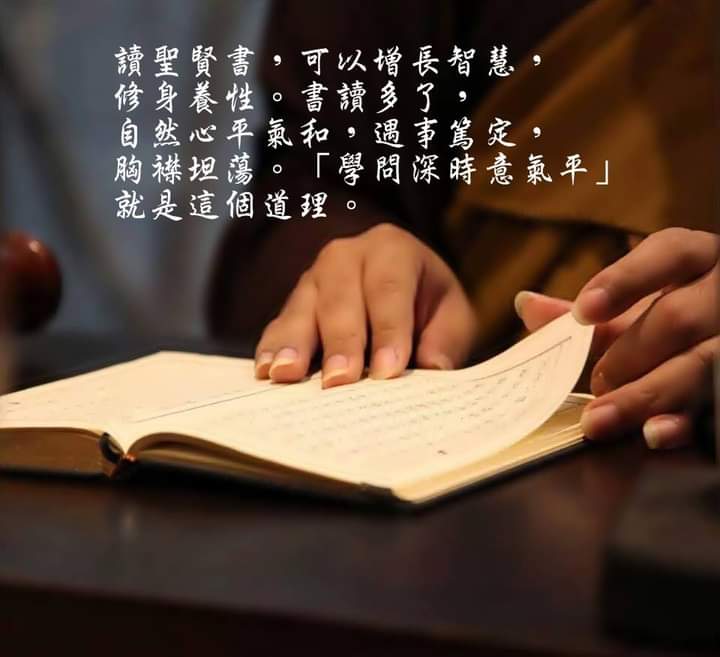 讀聖賢書，可以增長智慧，
修身養性。書讀多了，
自然心平氣和，遇事篤定，
胸襟坦蕩。「學問深時意氣平」
就是這個道理。